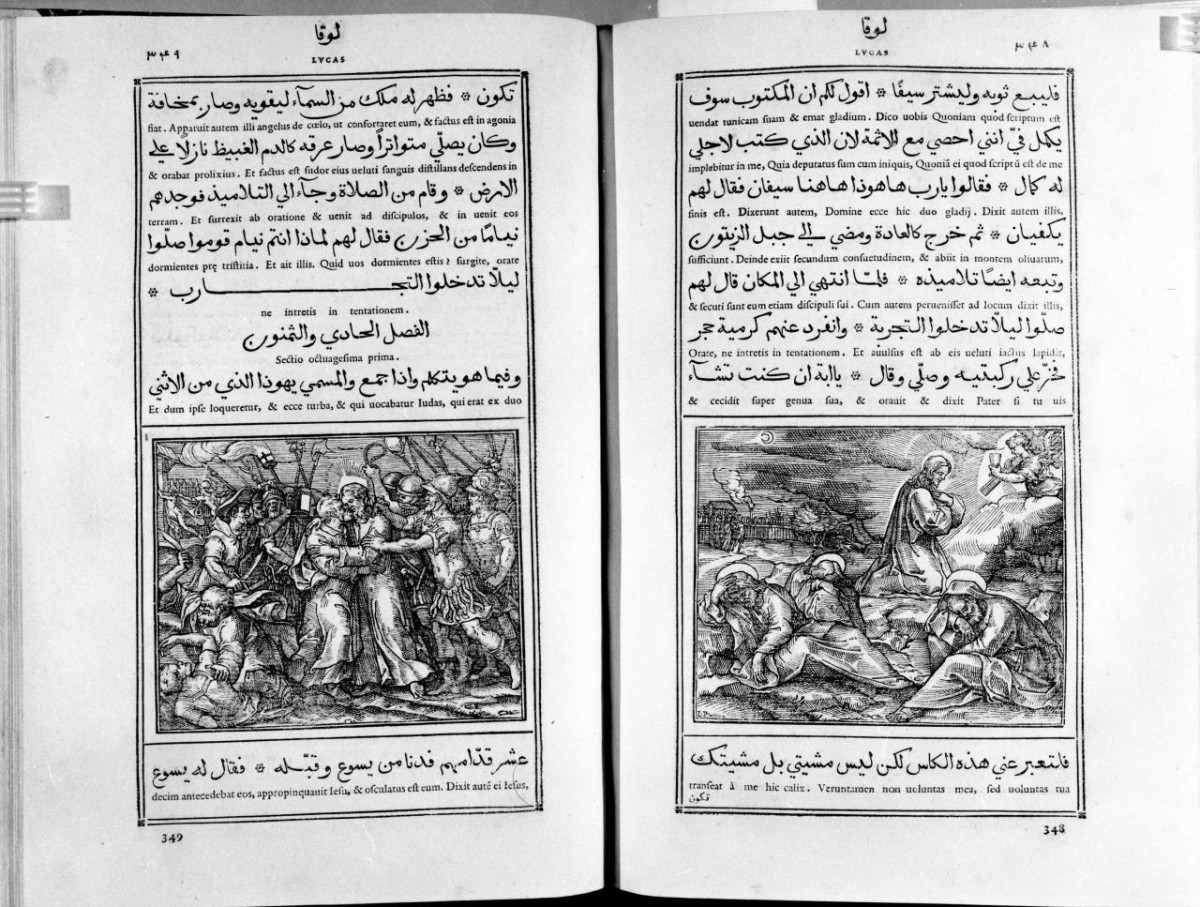 لوقا
LVCAS
٣۴٨
فليبيع ثوبه وليشتر سيفًا * اقول لكم ان المكتوب سوف
uendat tunicam suam & emat gladium. Dico uobis Quoniam quod scriptum est
يكمل فيّ انني احصي مع الاثمة لان الذي كتب لاجلي
implebitur in me, Quia deputatus sum cum iniquis, Quoniã ei quod scriptũ est de me
له كمال * فقالوا يارب هاهوذا هاهنا سيفان فقال لهم
finis est. Dixerunt autem, Domine ecce hic duo gladij. Dixit autem illis.
يكفيان * ثم خرج كالعادة ومضي الي جبل الزيتون
sufficiunt. Deinde exiit secundum consuetudinem, & abiit in montem oliuarum,
وتبعه ايضًا تلاميذه * فلمّا انتهي الي المكان قال لهم
& secuti sunt eum etiam discipuli sui. Cum autem peruenisset ad locum dixit illis,
صلّوا ليلّا تدخلوا التجربة * وانفرد عنهم كرمية حجر
Orate, ne intretis in tentationem. Et auulsus est ab eis ueluti iactus lapidis,
فخرّ علي ركبتيه وصلّي وقال * ياابة ان كنت تشآء
& cecidit super genua sua, & orauit & dixit Pater si tu uis
فلتعبر عني هذه الكاس لكن ليس مشيتي بل مشيتك
transeat à me hic calix. Veruntamen non uoluntas mea, sed uoluntas tua
تكون
348
لوقا
LVCAS
٣۴٩
تكون * فظهر له ملك من السمآء ليقويه وصار بمخافة
fiat. Apparuit autem illi angelus de cœlo, ut confortaret eum, & factus est in agonia
وكان يصلّي متواترًا وصار عرقه كالدم الغبيظ نازلًا علي
& orabat prolixius. Et factus est sudor eius ueluti sanguis distillans descendens in
الارض * وقام من الصلاة وجآء الي التلاميذ فوجدهم
terram. Et surrexit ab oratione & uenit ad discipulos, & in uenit eos
نيامًا من الحزن فقال لهم لماذا انتم نيام قوموا صلّوا
dormientes prę tristitia. Et ait illis. Quid uos dormientes estis? surgite, orate
ليلّا تدخلوا التجـــارب *
ne intretis in tentationem.
الفصل الحادي والثمنون
Sectio octuagesima prima.
وفيما هو يتكلم واذا جمع والمسمي يهوذا الذي من الاثني
Et dum ipse loqueretur, & ecce turba, & qui uocabatur Iudas, qui erat ex duo
عشر قدّامهم فدنا من يسوع وقبّله * فقال له يسوع
decim antecedebat eos, appropinquauit Iesu, & osculatus est eum. Dixit autẽ ei Iesus,
349